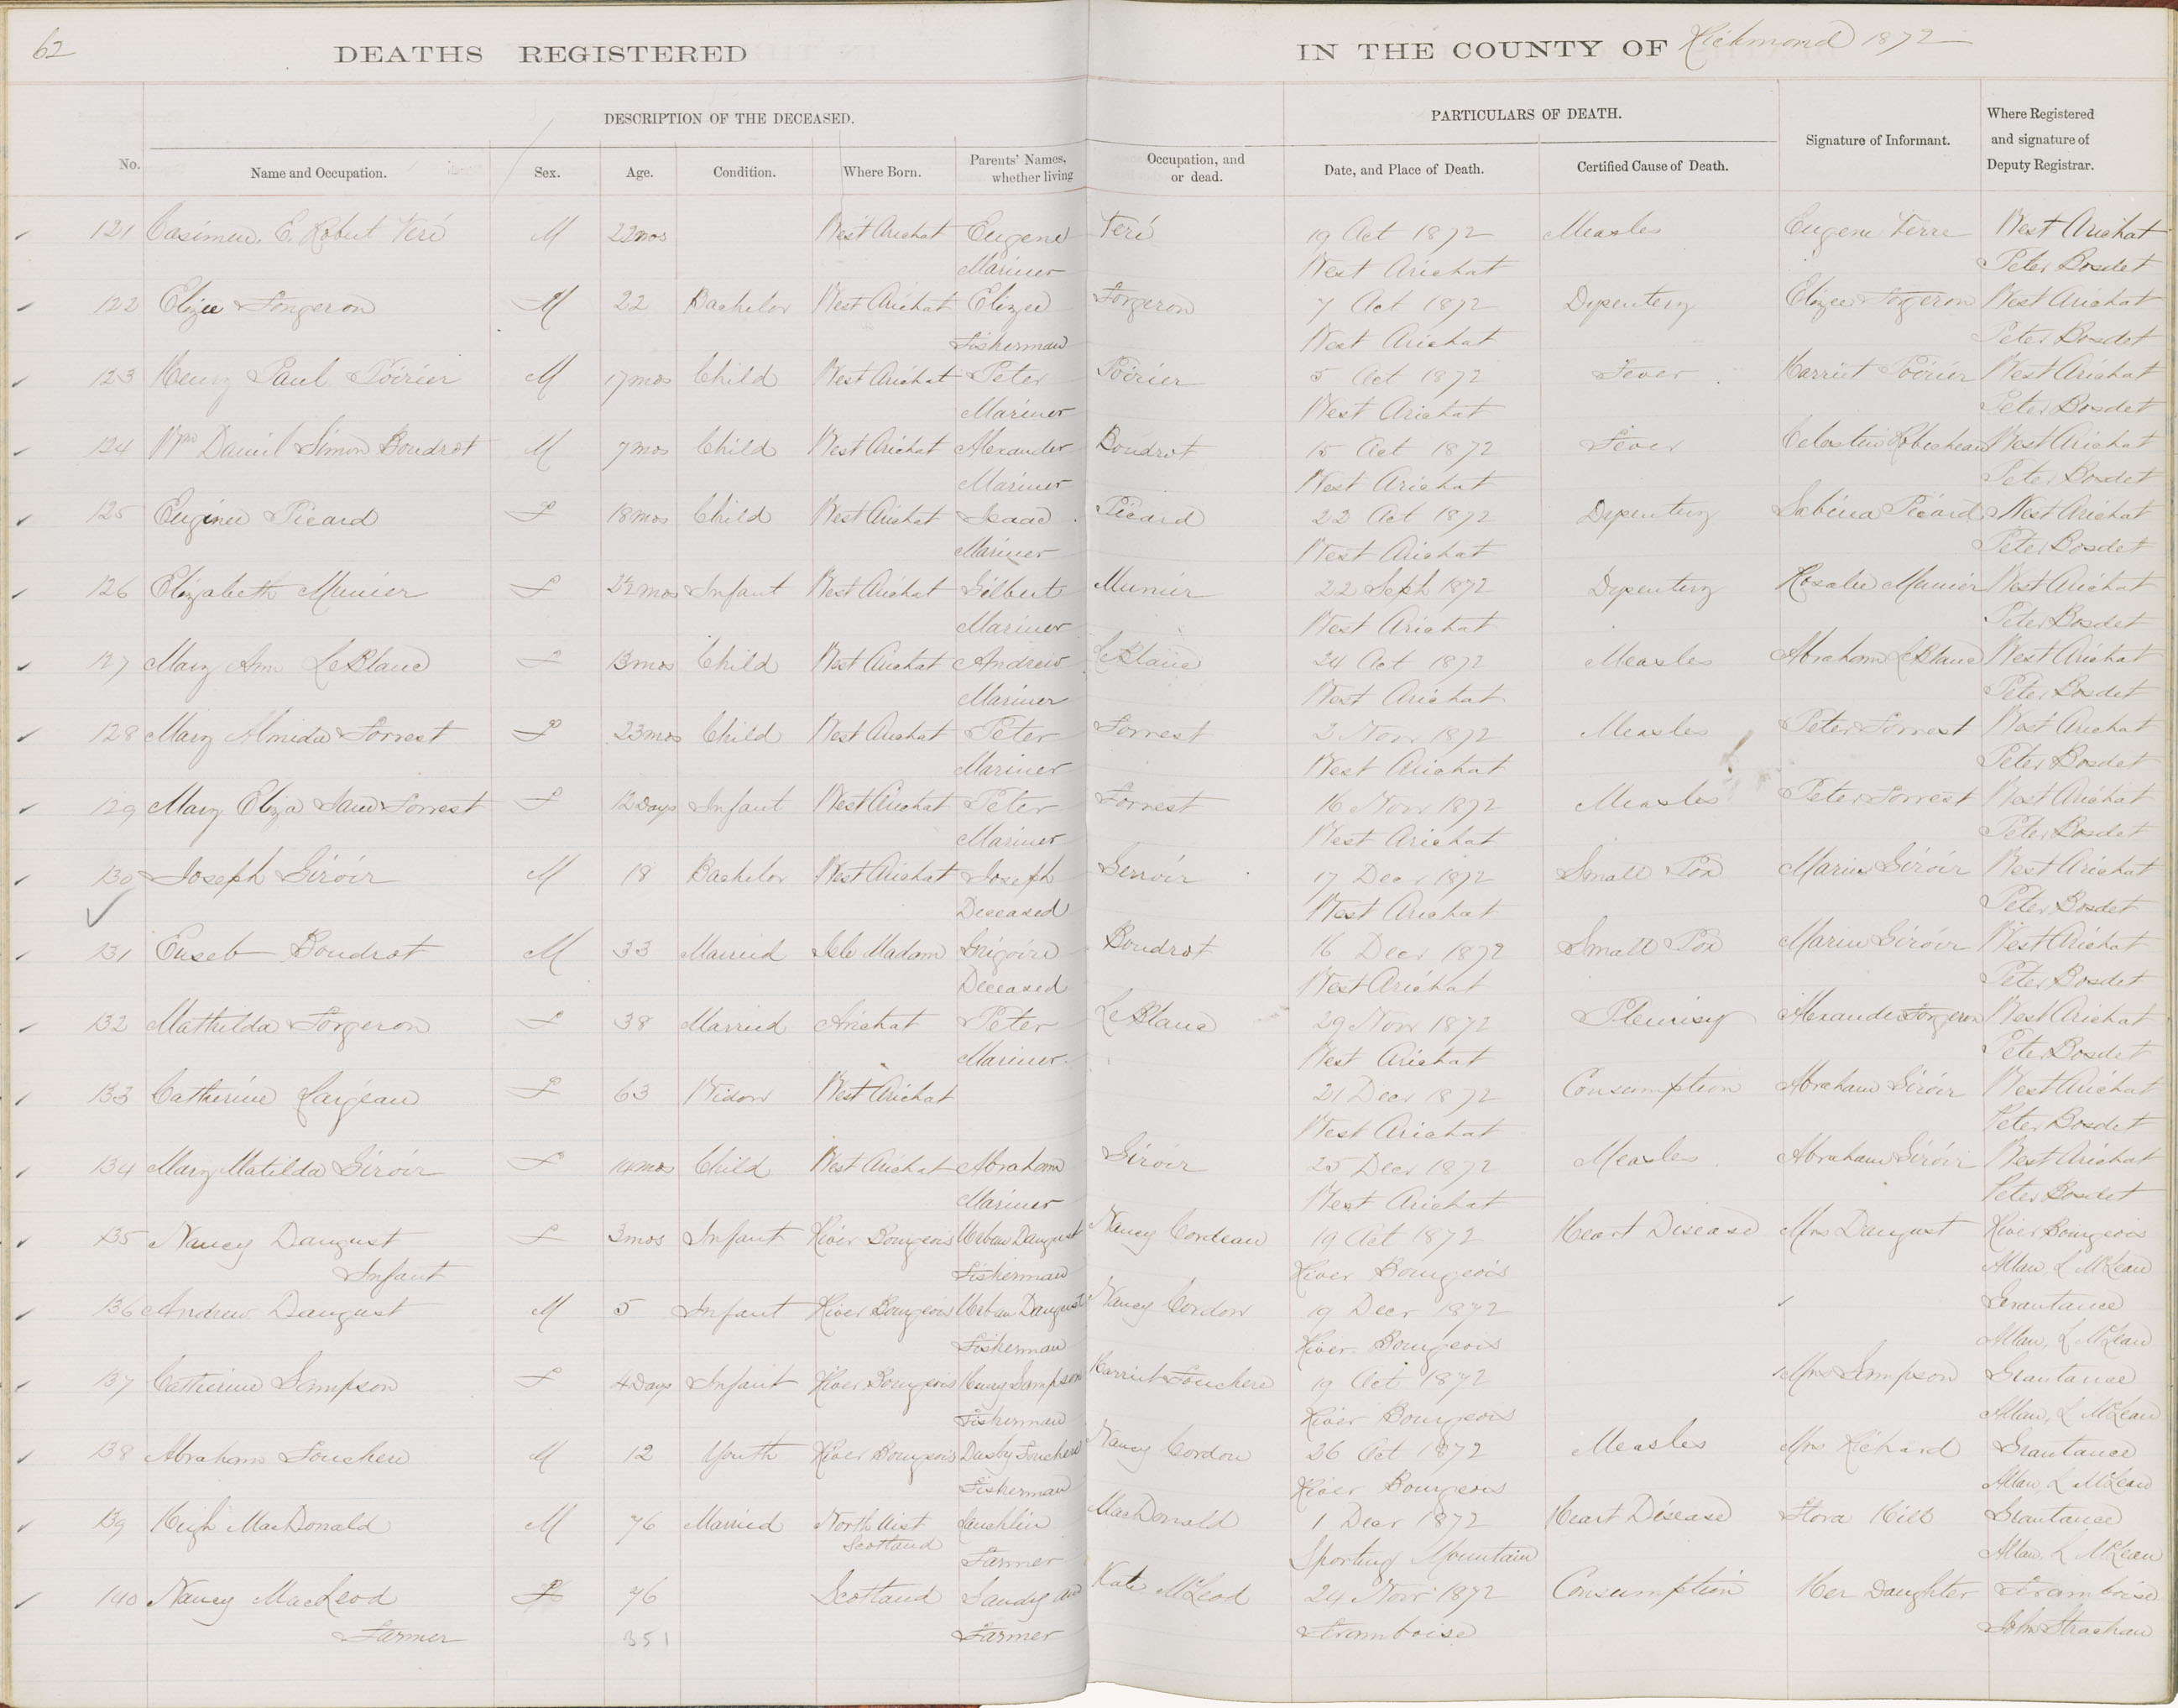 62
DEATHS REGISTERED IN THE COUNTY OF Richmond 1872
DESCRIPTION OF THE DECEASED. PARTICULARS OF DEATH.
No. Name and Occupation. Sex. Age. Condition. Where Born. Parents' Names, whether living Occupation, and or dead. Date, and Place of Death. Certified Cause of Death. Signature of Informant. Where Registered and signature of Deputy Registrar.
121 E. Robert Teré M 22mos West Arichat Eugene Teré 19 Oct 1872 Measles Eugene Terre West Arichat
Mariner West Arichat Peter Bosdet
122 Elizee Forgeron M 22 Bachelor West Arichat Elizee Forgeron 7 Oct 1872 Dysentery Elizee Forgeron West Arichat
Fisherman West Arichat Peter Bosdet
123 Henry Paul Poirier M 17mos Child West Arichat Peter Poirier 5 Oct 1872 Fever Harriet Poirier West Arichat
Mariner West Arichat Peter Bosdet
124 Wm Daniel Simon Boudrot M 7mos Child West Arichat Alexander Boudrot 15 Oct 1872 Fever Celestin Robicheau West Arichat
Mariner West Arichat Peter Bosdet
125 Euginee Picard F 18mos Child West Arichat Isaac Picard 22 Oct 1872 Dysentery Sabina Picard West Arichat
Mariner West Arichat Peter Bosdet
126 Elizabeth Munier F 2½mos Infant West Arichat Gilbert Munier 22 Sept 1872 Dysentery Rosalie Munier West Arichat
Mariner West Arichat Peter Bosdet
127 Mary Ann LeBlanc F 13mos Child West Arichat Andrew LeBlanc 24 Oct 1872 Measles Abraham LeBlanc West Arichat
Mariner West Arichat Peter Bosdet
128 Mary Almida Forrest F 23mos Child West Arichat Peter Forrest 2 Novr 1872 Measles Peter Forrest West Arichat
Mariner West Arichat Peter Bosdet
129 Mary Eliza Jane Forrest F 12 Days Infant West Arichat Peter Forrest 16 Novr 1872 Measles Peter Forrest West Arichat
Mariner West Arichat Peter Bosdet
130 Joseph Giroir M 18 Bachelor West Arichat Joseph Gerroir 17 Decr 1872 Small Pox Marin Giroir West Arichat
Deceased West Arichat Peter Bosdet
131 Euseb Boudrot M 33 Married Isle Madam Grigoire Boudrot 16 Decr 1872 Small Pox Marin Giroir West Arichat
Deceased West Arichat Peter Bosdet
132 Mathilda Forgeron F 38 Married Arichat Peter LeBlanc 29 Novr 1872 Pleurisy Alexander Forgeron West Arichat
Mariner West Arichat Peter Bosdet
133 Catherine F 63 Widow West Arichat 21 Decr 1872 Consumption Abraham Giroir West Arichat
West Arichat Peter Bosdet
134 Mary Matilda Giroir F 14mos Child West Arichat Abraham Giroir 25 Decr 1872 Measles Abraham Giroir West Arichat
Mariner West Arichat Peter Bosdet
135 Nancy Daugust F 3mos Infant River Bourgeois Urban Daugust Nancy Cordeau 19 Oct 1872 Heart Disease Mrs Daugust River Bourgeois
Infant Fisherman River Bourgeois Allan, L McLean
136 Andrew Daugust M 5 Infant River Bourgeois Urban Daugust Nancy Cordow 19 Decr 1872 Grantance
Fisherman River Bourgeois Allan, L McLean
137 Catherine Sampson F 4 Days Infant River Bourgeois Henry Sampson Harriet Fouchere 19 Oct 1872 Mrs Sampson Grantance
Fisherman River Bourgeois Allan, L McLean
138 Abraham Fouchere M 12 Youth River Bourgeois Fouchere Nancy Cordow 26 Oct 1872 Measles Mrs Richard Grantance
Fisherman River Bourgeois Allan, L McLean
139 Hugh MacDonald M 76 Married North Uist Lauchlin MacDonald 1 Decr 1872 Heart Disease Flora Hill Grantance
Scotland Farmer Sporting Mountain Allan, L McLean
140 Nancy MacLeod F 76 Scotland Sandy and Kate McLeod 24 Novr 1872 Consumption Her Daughter Framboise
Farmer 351 Farmer Framboise John Strachan